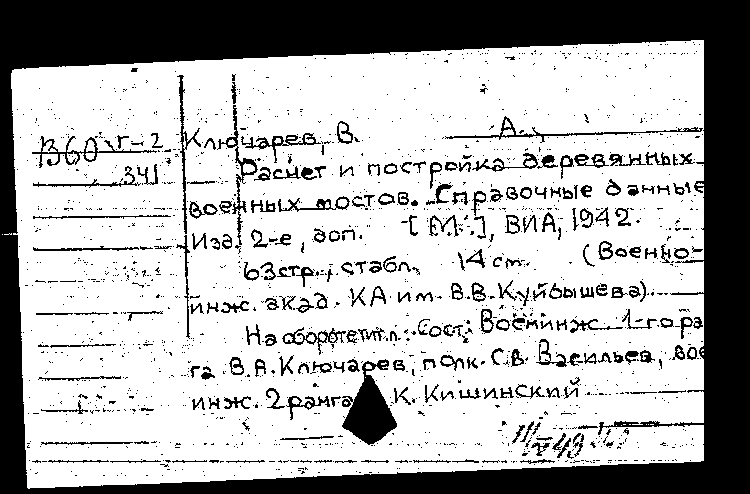 В60 г-2
341
Ключарев, В. А.
Расчет и постройка деревянных
военных мостов. Справочные данные
Изд. 2-е, доп. [М.], ВИА, 1942.
63 стр., с табл. 14 см. (Военно-
инж. акад. КА им. В.В. Куйбышева).
На обороте тит. л.: Сост: Воен инж. 1-го ра
га В.А. Ключарев, полк. С.В. Васильев, вое
инж. 2 ранга К. Кишинский